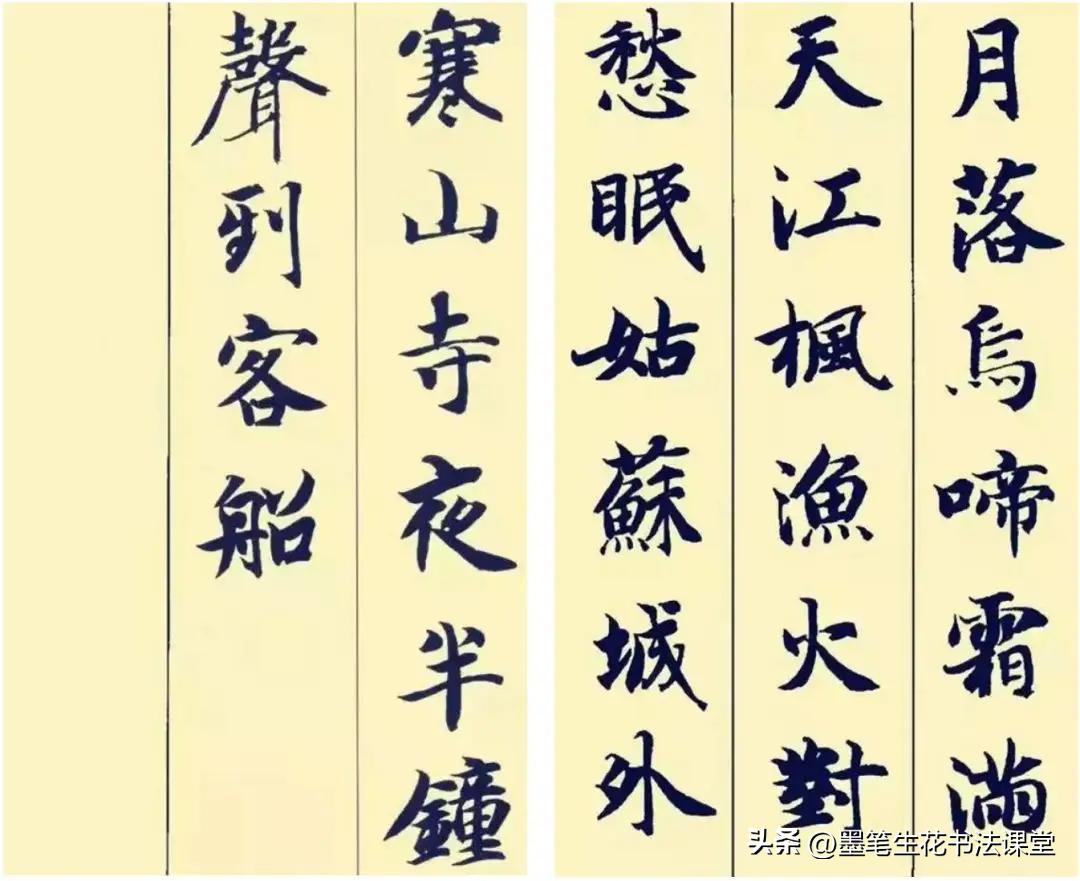 月落烏啼霜滿
天江楓漁火對
愁眠姑蘇城外
寒山寺夜半鐘
聲到客船
头条 @墨笔生花书法课堂